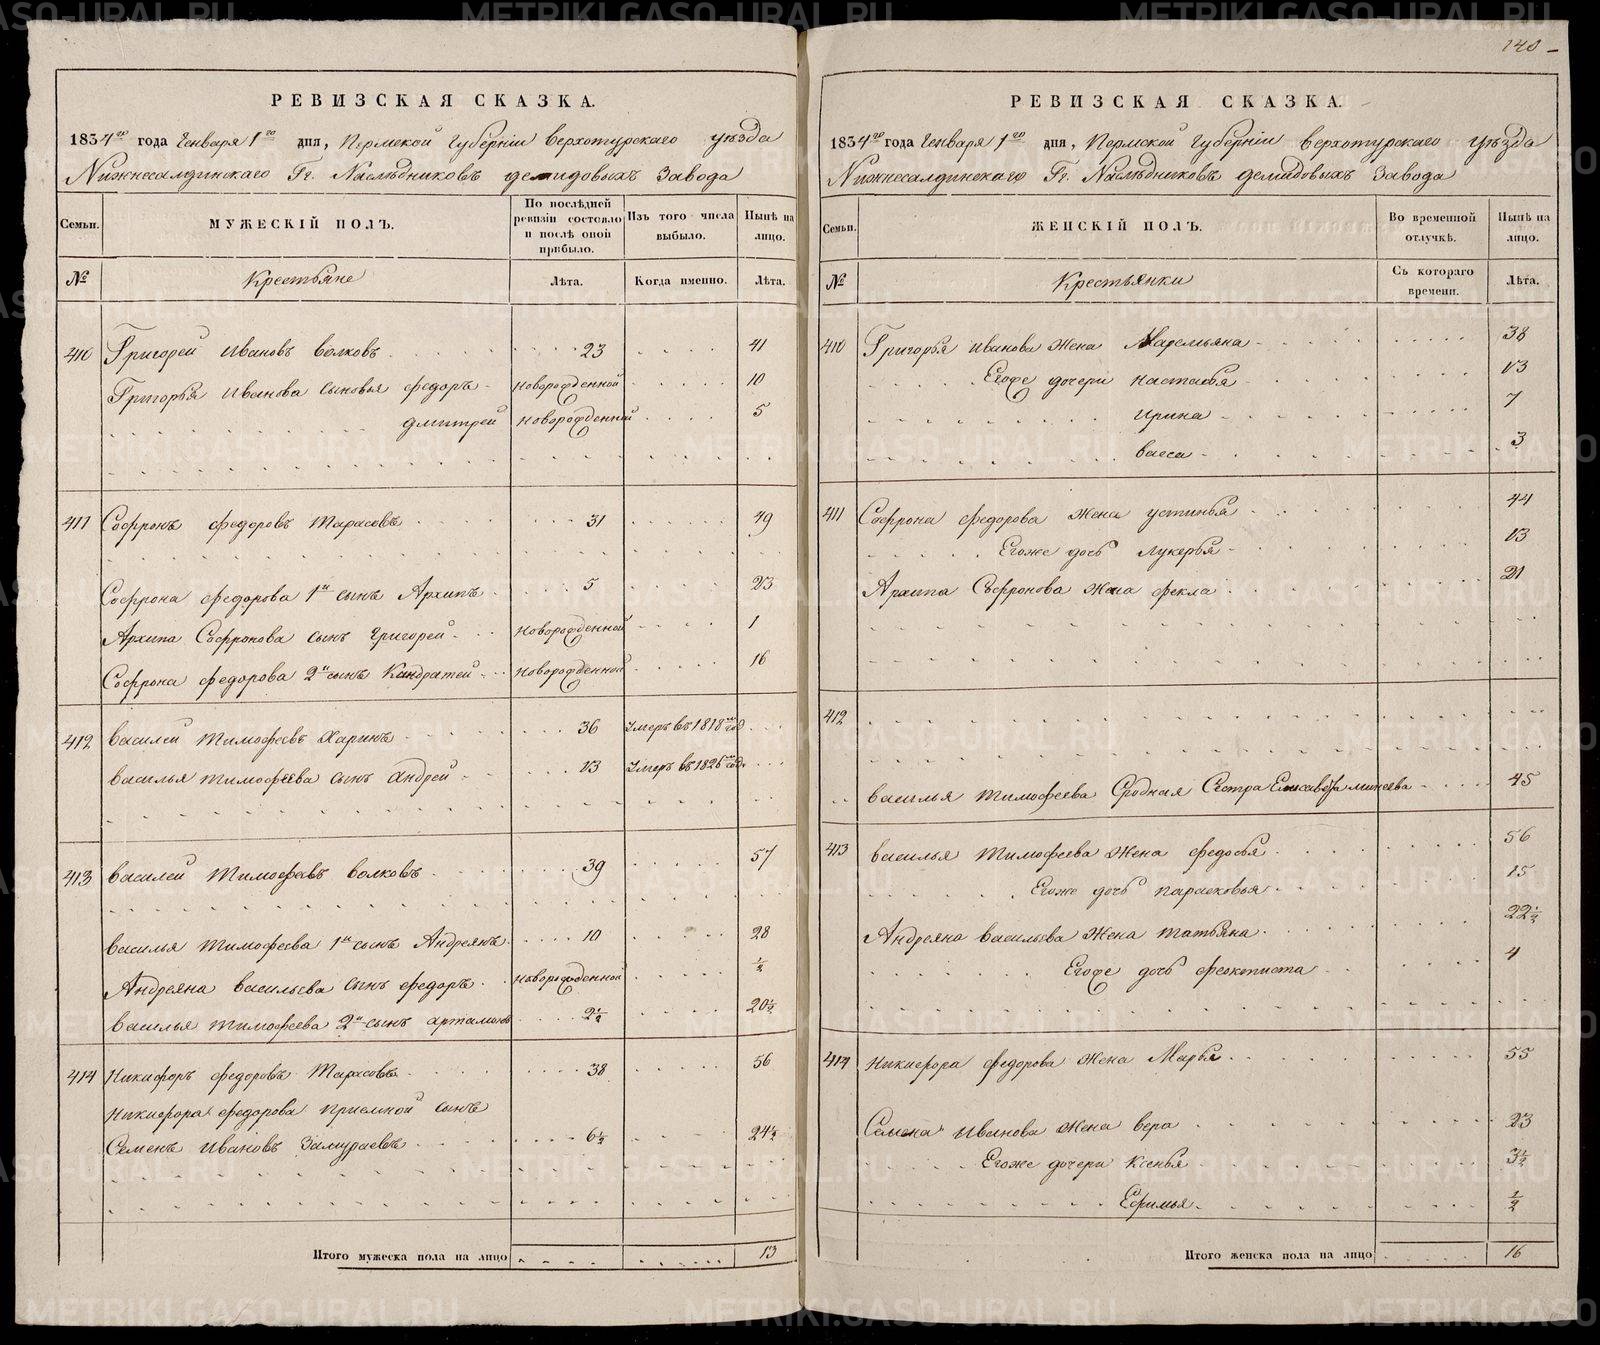 140
РЕВИЗСКАЯ СКАЗКА.
1834го года Генваря 1го дня, Пермской Губерніи Верхотурскаго уѣзда
Нижнесалдинскаго Гг. Наслѣдниковъ Демидовыхъ Завода
Семьи.
МУЖЕСКІЙ ПОЛЪ.
По послѣдней ревизіи состояло и послѣ оной прибыло.
Изъ того числа выбыло.
Нынѣ на лицо.
№
Крестьяне
Лѣта.
Когда именно.
Лѣта.
410 Григорей Ивановъ Волковъ 23 41
Григорья Иванова сыновья Федоръ новорожденной 10
Дмитрей новорожденной 5
411 Софронъ Федоровъ Тарасовъ 31 49
Софрона Федорова 1й сынъ Архипъ 5 23
Архипа Софронова сынъ Григорей новорожденной 1
Софрона Федорова 2й сынъ Кандратей новорожденной 16
412 Василей Тимофеевъ Харинъ 36 Умеръ въ 1818м год
Василья Тимофеева сынъ Андрей 13 Умеръ въ 1826м год.
413 Василей Тимофеевъ Волковъ 39 57
Василья Тимофеева 1й сынъ Андреянъ 10 28
Андреяна Васильева сынъ Федоръ новорожденной 1/2
Василья Тимофеева 2й сынъ Артамонъ 2 1/2 20 1/2
414 Никифоръ Федоровъ Тарасовъ 38 56
Никифора Федорова приемной сынъ
Семенъ Ивановъ Замураевъ 6 1/2 24 1/2
Итого мужеска пола на лицо 13
РЕВИЗСКАЯ СКАЗКА.
1834го года Генваря 1го дня, Пермской Губерніи Верхотурскаго уѣзда
Нижнесалдинскаго Гг. Наслѣдниковъ Демидовыхъ Завода
Семьи.
ЖЕНСКІЙ ПОЛЪ.
Во временной отлучкѣ.
Нынѣ на лицо.
№
Крестьянки
Съ котораго времени.
Лѣта.
410 Григорья Иванова жена Маремьяна 38
Егоже дочери Настасья 13
Ирина 7
Васса 3
411 Софрона Федорова жена Устинья 44
Егоже дочь Лукерья 13
Архипа Софронова жена Фекла 21
412
Василья Тимофеева Сродная Сестра Елисавета 45
413 Василья Тимофеева жена Федосья 56
Егоже дочь Парасковья 15
Андреяна Васильева жена Татьяна 22 1/2
Егоже дочь Феоктиста 4
414 Никифора Федорова жена Марья 55
Семена Иванова жена Вера 23
Егоже дочери Ксенья 3 1/2
Ефимья 1/2
Итого женска пола на лицо 16
METRIKI.GASO-URAL.RU